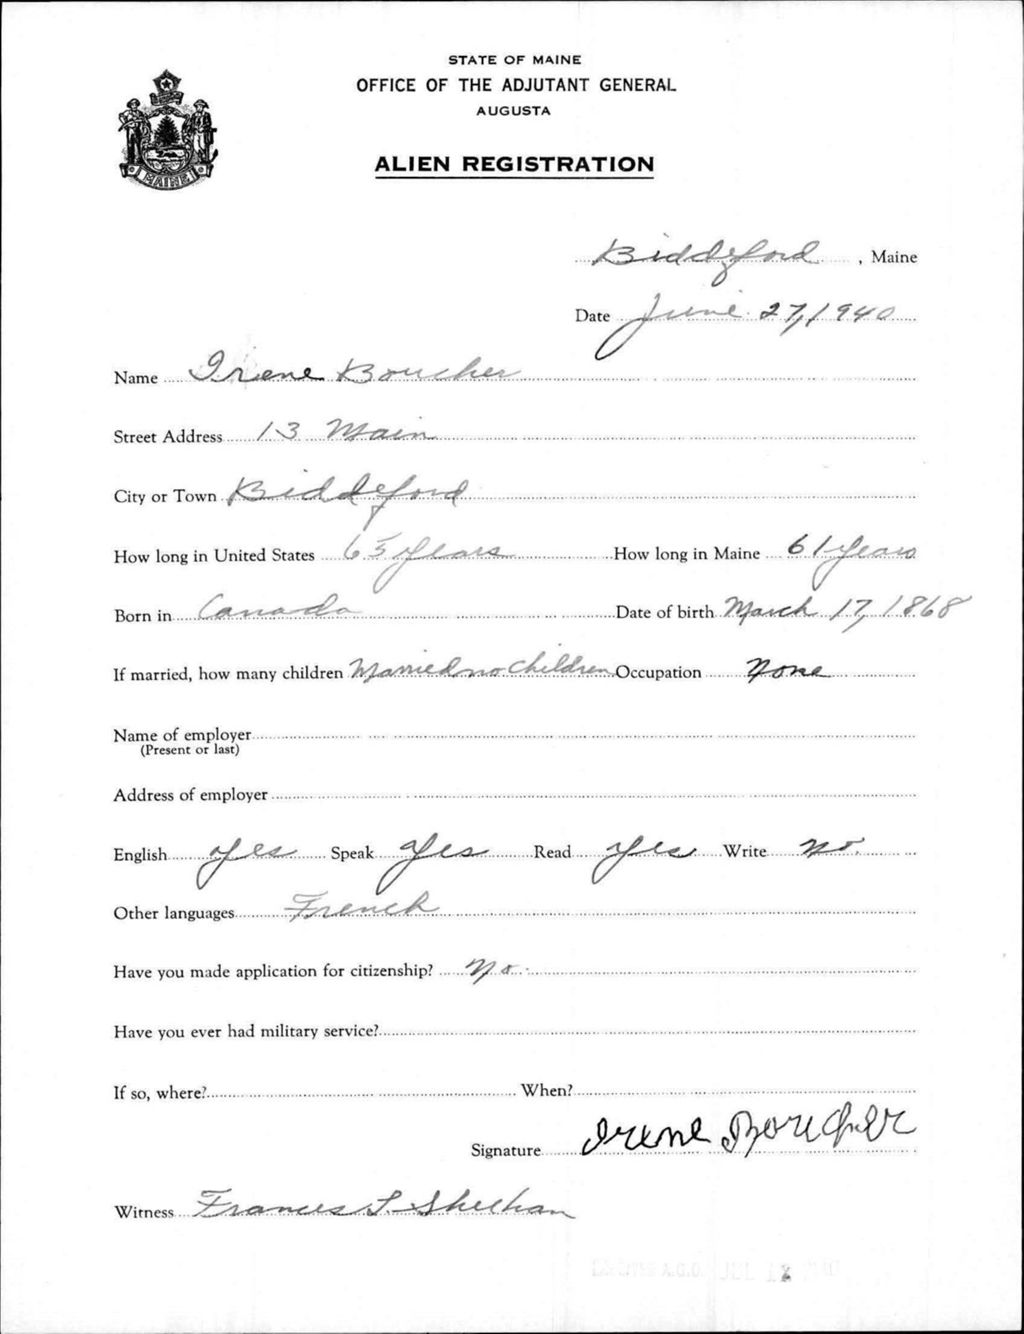 STATE OF MAINE
OFFICE OF THE ADJUTANT GENERAL
AUGUSTA
ALIEN REGISTRATION
MAINE
Biddeford, Maine
Date June 27, 1940
Name Irene Boucher
Street Address 13 Main
City or Town Biddeford
How long in United States 65 years How long in Maine 61 years
Born in Canada Date of birth March 17, 1868
If married, how many children Married no children Occupation None
Name of employer
(Present or last)
Address of employer
English yes Speak yes Read yes Write no.
Other languages French
Have you made application for citizenship? No.
Have you ever had military service?
If so, where? When?
Signature Irene Boucher
Witness Frances L. Sheehan
A.G.O. JUL 12